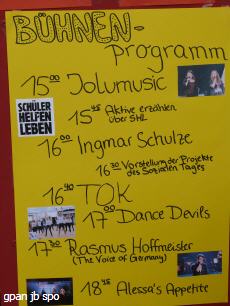 BÜHNEN-
Programm
15⁰⁰ Jolumusic
SCHÜLER
HELFEN
LEBEN
15⁴⁵ Aktive erzählen
über SHL
16⁰⁰ Ingmar Schulze
16³⁰ Vorstellung der Projekte
des Sozialen Tages
16⁴⁰ TOK
17⁰⁰ Dance Devils
17³⁰ Rasmus Hoffmeister
(The Voice of Germany)
18¹⁵ Alessa's Appetite
gpan jb spo